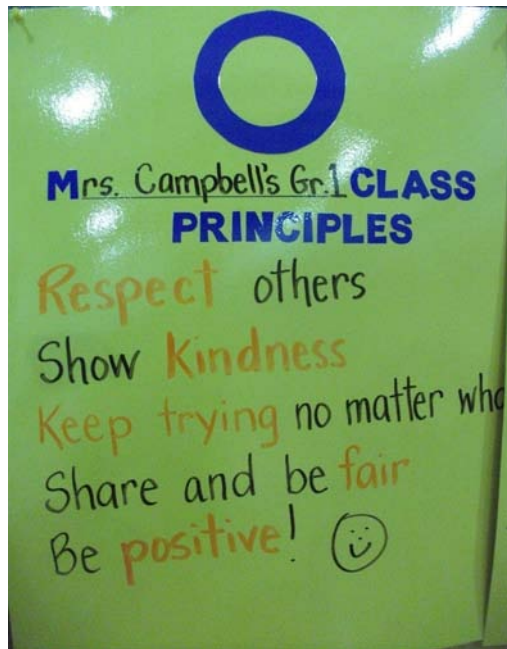 Mrs. Campbell's Gr.1 CLASS
PRINCIPLES
Respect others
Show Kindness
Keep trying no matter
Share and be fair
Be positive!